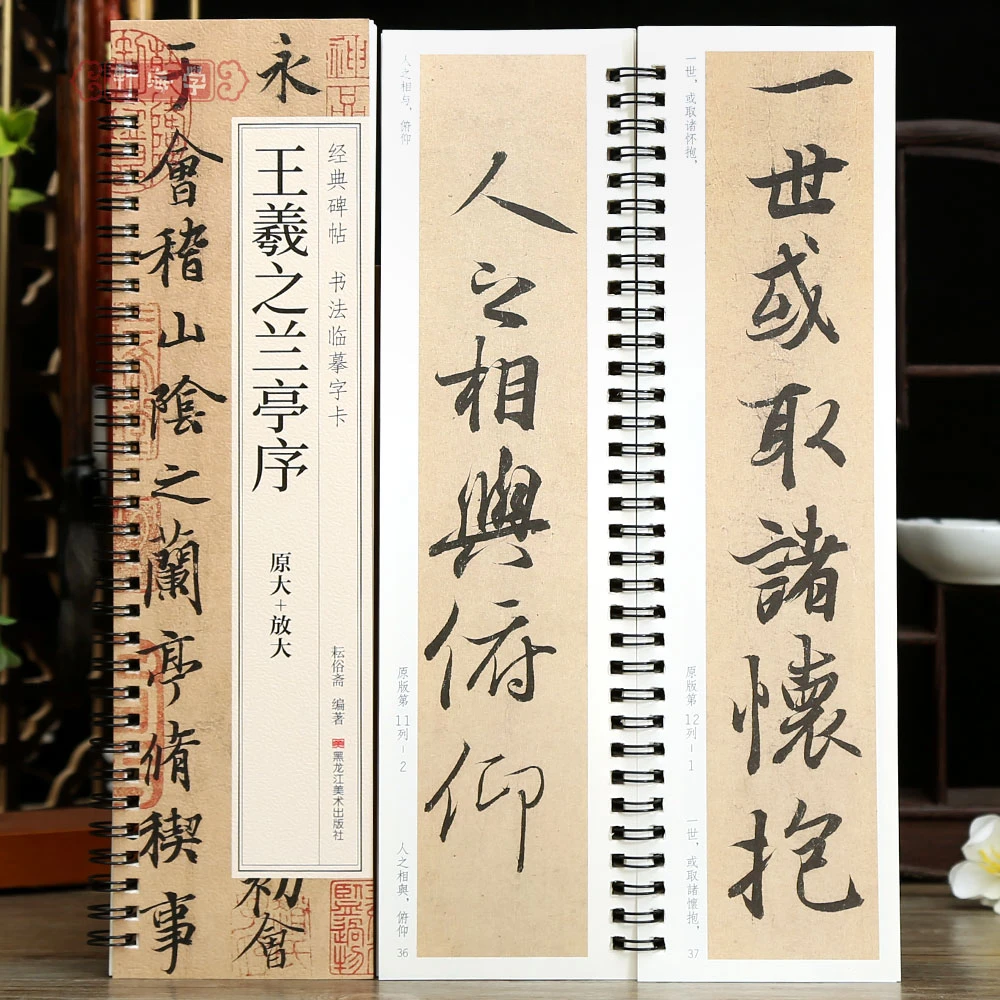 永
初會
于會稽山陰之蘭亭脩稧事
经典碑帖 书法临摹字卡
王羲之兰亭序
原大+放大
耘俗斋 编著
黑龙江美术出版社
人之相与，俯仰
人之相與俯仰
原版第11列-2
人之相與，俯仰
36
一世，或取诸怀抱，
一世或取諸懷抱
原版第12列-1
一世，或取諸懷抱，
37